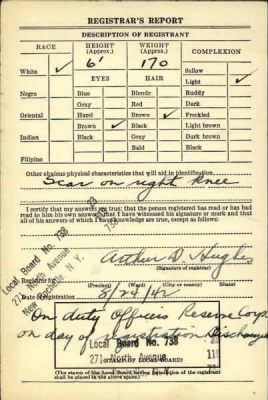 REGISTRAR'S REPORT
DESCRIPTION OF REGISTRANT
RACE
HEIGHT (Approx.)
WEIGHT (Approx.)
COMPLEXION
6' 170
White ✓
Sallow
Light ✓
EYES HAIR
Negro Blue Blonde Ruddy
Gray Red Dark
Oriental Hazel Brown ✓ Freckled
Brown ✓ Black Light brown
Indian Black Gray Dark brown
Bald Black
Filipino
Other obvious physical characteristics that will aid in identification
Scar on right knee
I certify that my answers are true; that the person registered has read or has had
read to him his own answers; that I have witnessed his signature or mark and that
all of his answers of which I have knowledge are true, except as follows:
Local Board No. 738
271 North Avenue
New Rochelle, N. Y.
Arthur D. Hughes
(Signature of registrar)
Registrar for
(Precinct) (Ward) (City or county) (State)
Date of registration
On duty Officers Reserve Corps
on day of registration Discharged
Local Board No. 738
271 North Avenue
(STAMP OF LOCAL BOARD)
(The stamp of the Local Board having jurisdiction of the registrant
shall be placed in the above space.)